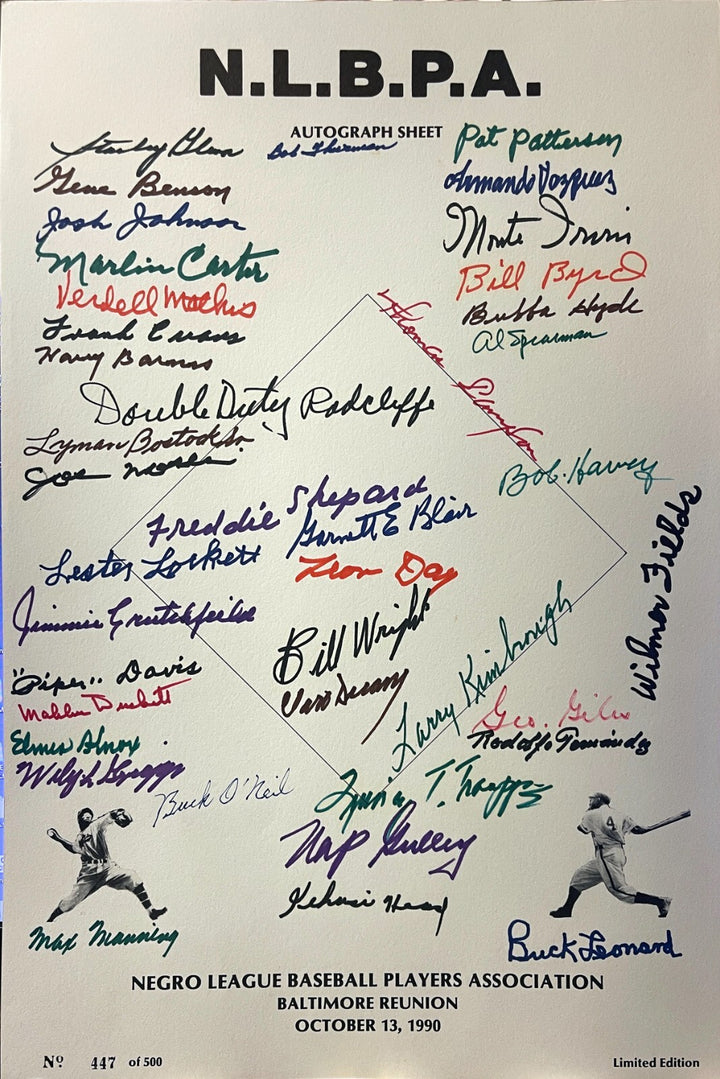 N.L.B.P.A.
AUTOGRAPH SHEET
Stanley Glenn
Bob Thurman
Pat Patterson
Gene Benson
Armando Vazquez
Josh Johnson
Monte Irvin
Marlin Carter
Bill Byrd
Verdell Mathis
Bubba Hyde
Frank Evans
Al Spearman
Harry Barnes
Thomas
Double Duty Radcliffe
Lyman Bostock Sr.
Joe
Bob. Harvey
Freddie Shepard
Garnett E Blair
Lester Lockett
Leon Day
Wilmer Fields
Jimmie Crutchfield
Bill Wright
"Piper" Davis
Larry Kimbrough
Mahlon Duckett
Geo. Giles
Rodolfo Fernández
Wiley L Griggs
Buck O'Neil
Nap Gulley
Max Manning
Buck Leonard
NEGRO LEAGUE BASEBALL PLAYERS ASSOCIATION
BALTIMORE REUNION
OCTOBER 13, 1990
No 447 of 500
Limited Edition